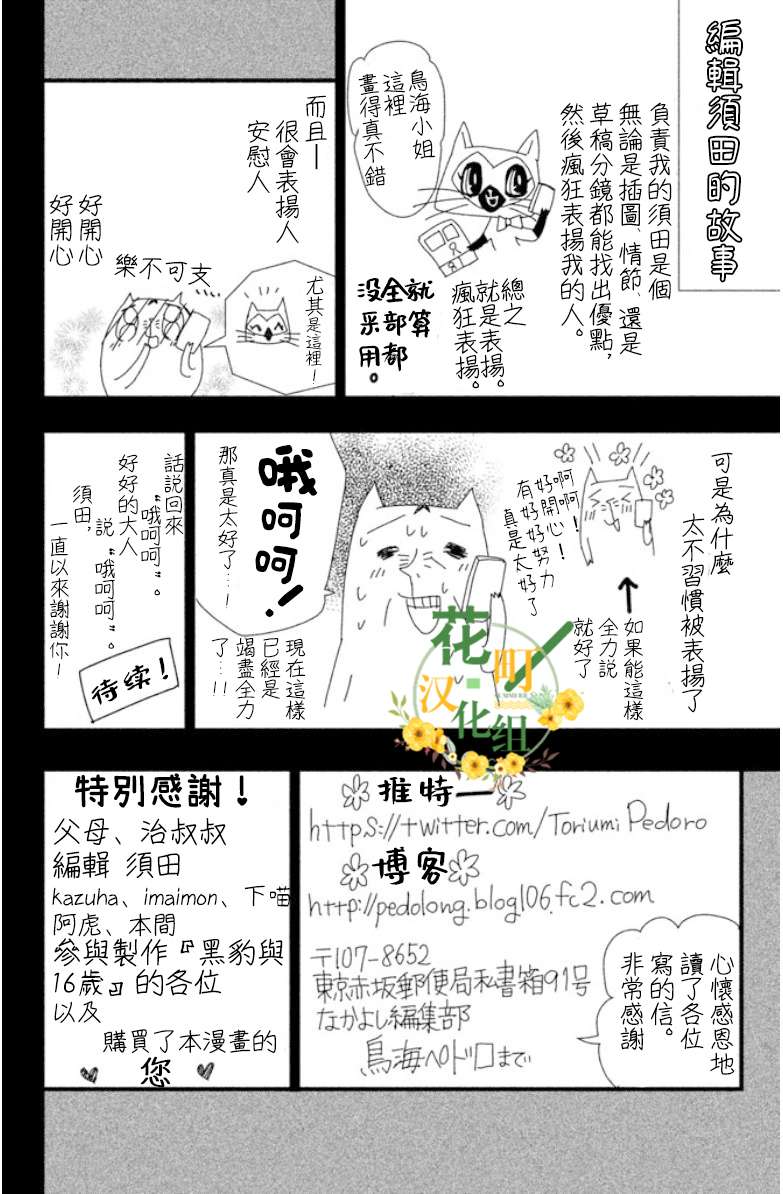 編輯須田的故事
負責我的須田是個
無論是插圖、情節、還是
草稿分鏡都能找出優點，
然後瘋狂表揚我的人。
鳥海小姐
這裡
畫得真不錯
總之
就是表揚。
瘋狂表揚。
就算都
全部
没采用。
而且—
很會表揚人
安慰人
尤其是這裡！
樂不可支
好開心
好開心
可是為什麼
太不習慣被表揚了
啊啊！
好開心！
有好好努力
真是太好了
如果能這樣
全力說
就好了
哦呵呵！
那真是太好了…！
現在這樣
已經是
竭盡全力
了…!!
話説回來
“哦呵呵”。
好好的大人
説“哦呵呵”。
須田，
一直以來謝謝你—
待续！
花町
汉化组
SUMMER
推特
https://twitter.com/ToriumiPedoro
博客
http://pedolong.blog106.fc2.com
〒107-8652
東京赤坂郵便局私書箱91号
なかよし編集部
鳥海ペドロまで
心懷感恩地
讀了各位
寫的信。
非常感謝
特別感謝！
父母、治叔叔
編輯 須田
kazuha、imaimon、下喵
阿虎、本間
參與製作『黑豹與
16歲』的各位
以及
購買了本漫畫的
您